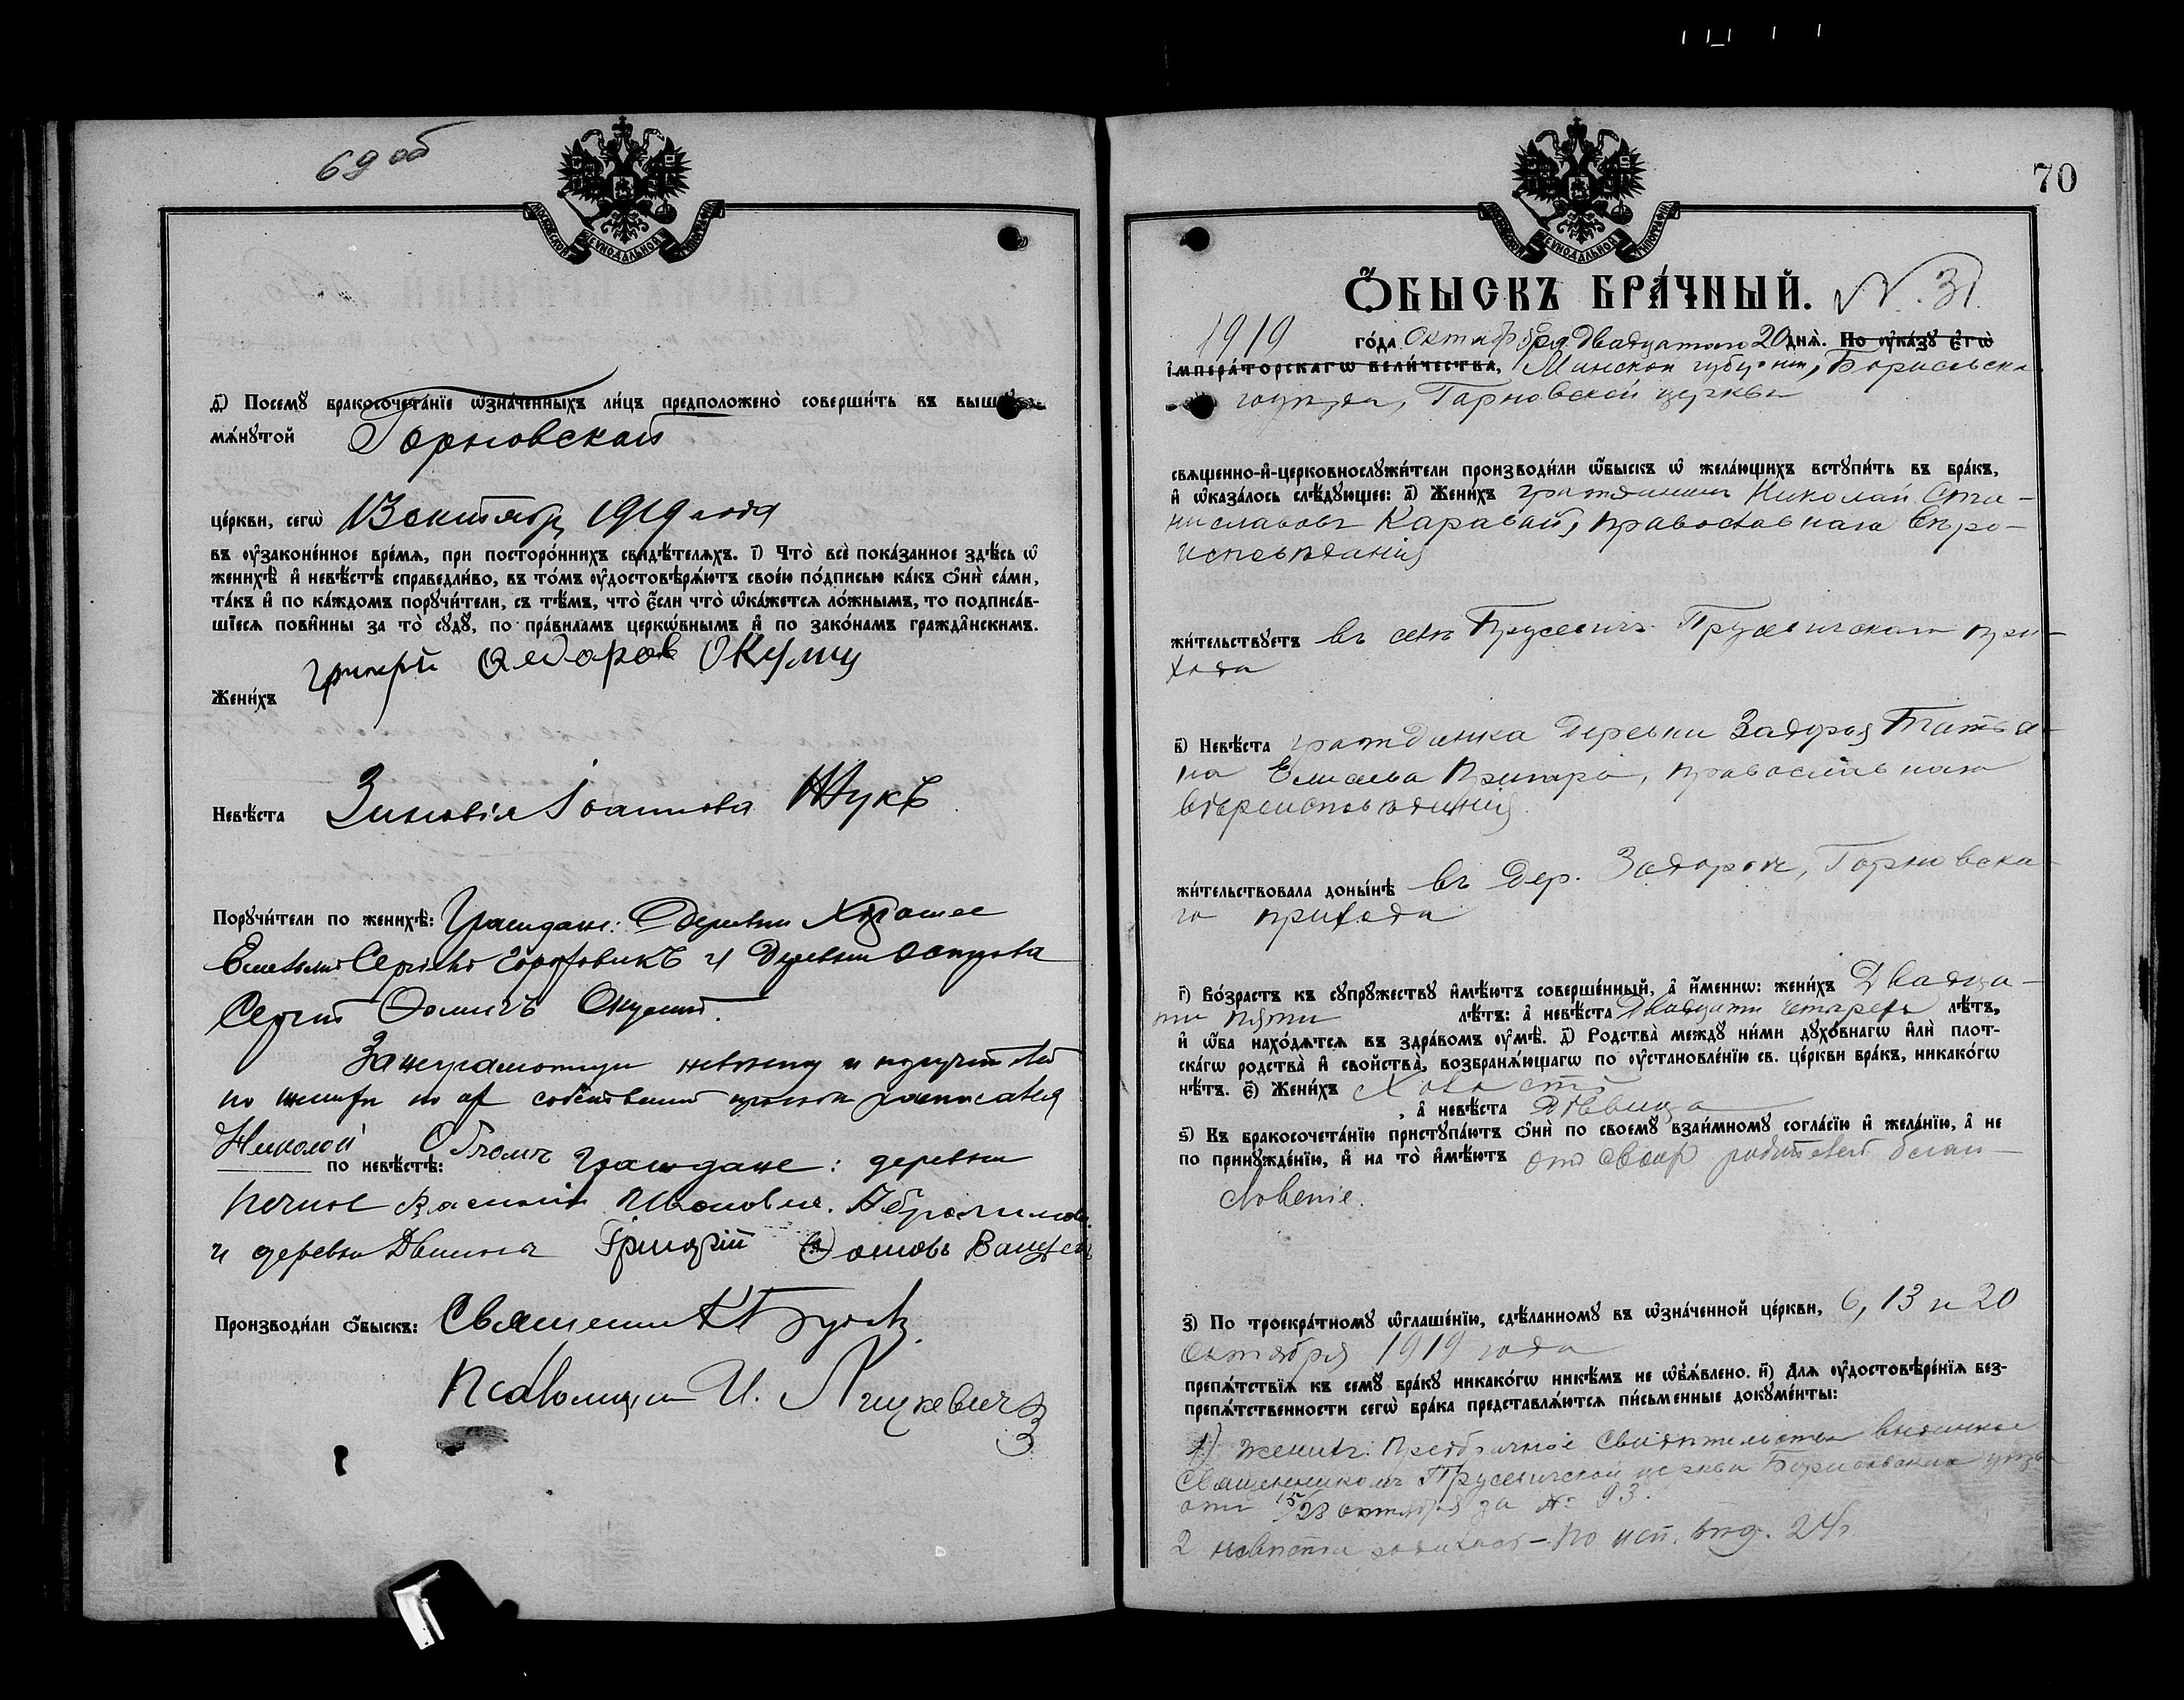 69 об
МОСКОВСКОЙ СѴНОДАЛЬНОЙ ТИПОГРАФІИ
д҃) Посемꙋ бракосочета́нїе ѡ҆зна́ченныхъ ли́цъ предположено̀ соверши́ть въ выше
мѧ́нꙋтой Горновской
це́ркви, сегѡ̀ 13 октября 1919 года
въ ᲂу҆законе́нное вре́мѧ, при посторо́ннихъ свидѣ́телѧхъ. і҃) Что̀ всѐ пока́занное здѣ́сь ѡ҆
женихѣ̀ и҆ невѣ́стѣ справедли́во, въ то́мъ ᲂу҆достовѣрѧ́ютъ свое́ю по́дписью ка́къ ѻ҆нѝ са́ми,
та́къ и҆ по ка́ждомъ порꙋчи́тели, съ тѣ́мъ, что̀ є҆́сли что̀ ѡ҆ка́жетсѧ ло́жнымъ, то подписа́в-
шїесѧ пови́нны за то̀ сꙋдꙋ̀, по пра́виламъ церкѡ́внымъ и҆ по зако́намъ гражда́нскимъ.
Жени́хъ Григорій Ѳедоров Окулич
Невѣ́ста Зиновія Іоаннова Жукъ
Порꙋчи́тели по женихѣ̀: Граждане: Деревни
Сергѣевъ и Деревни
Сергій Окулич.
За неграмотную невѣсту и поручителей
по женихѣ по их собственной просьбѣ росписался
Николай
по невѣ́стѣ: Граждане: деревни
Василій Ивановъ
и деревни Двиноса Григорій
Производи́ли ѻ҆́быскъ: Священник
Псаломщик И. Лицкевичъ
70
МОСКОВСКОЙ СѴНОДАЛЬНОЙ ТИПОГРАФІИ
Ѻ҆́БЫСКЪ БРА́ЧНЫЙ. N. 31.
1919 го́да Октября Двадцатаго 20 днѧ̀. По ᲂу҆ка́зꙋ є҆гѡ̀
і҆мпера́торскагѡ вели́чества, Минской губерніи, Борисовска
го уѣзда, Горновской церкви
свѧще́нно-и҆-церковнослꙋжи́тели производи́ли ѻ҆́быскъ ѡ҆ жела́ющихъ встꙋпи́ть въ бра́къ,
и҆ ѡ҆каза́лось слѣ́дꙋющее: а҃) Жени́хъ гражданинъ Николай Ста-
ниславовъ Каравай, православнаго вѣро-
исповѣданія
жи́тельствꙋетъ въ селѣ Прусевичъ Прусевичскаго при-
хода
в҃) Невѣ́ста гражданка деревни Задоръя Татья-
на Елисеева, православнаго
вѣроисповѣданія
жи́тельствовала доны́нѣ въ дер. Задорье, Горновска-
го прихода
г҃) Во́зрастъ къ сꙋпрꙋ́жествꙋ и҆мѣ́ютъ соверше́нный, а҆ и҆́меннѡ: жени́хъ Двадца-
ти пяти лѣ́тъ: а҆ невѣ́ста Двадцати четырехъ лѣ́тъ,
и҆ ѻ҆́ба нахо́дѧтсѧ въ здра́вомъ ᲂу҆мѣ̀. д҃) Родства̀ междꙋ ни́ми дꙋхо́внагѡ и҆лѝ плот-
ска́гѡ родства̀ и҆ сво́йства̀, возбранѧ́ющагѡ по ᲂу҆становле́нїю св. це́ркви бра́къ, никако́гѡ
нѣ́тъ. є҃) Жени́хъ Холостъ
, а҆ невѣ́ста Дѣвица
ѕ҃) Къ бракосочета́нїю пристꙋпа́ютъ ѻ҆нѝ по своемꙋ̀ взаи́мномꙋ согла́сїю и҆ жела́нїю, а҆ не
по принꙋжде́нїю, и҆ на то̀ и҆мѣ́ютъ отъ своихъ родителей благо-
словеніе.
з҃) По троекра́тномꙋ ѡ҆глаше́нїю, сдѣ́ланномꙋ въ ѡ҆зна́ченной це́ркви, 6, 13 и 20
октября 1919 года
препѧ́тствїѧ къ семꙋ̀ бра́кꙋ никако́гѡ никѣ́мъ не ѡ҆б̾ѧ́влено. и҃) Длѧ ᲂу҆достовѣре́нїѧ без-
препѧ́тственности сегѡ̀ бра́ка представлѧ́ютсѧ пи́сьменные докꙋме́нты:
1) женихъ: Предбрачное Свидѣтельство выданное
Священникомъ Прусевичской церкви Борисовскаго уѣзда
отъ 15/28 октября за № 93.
2 невѣста – по исп. вѣд. 24 г.